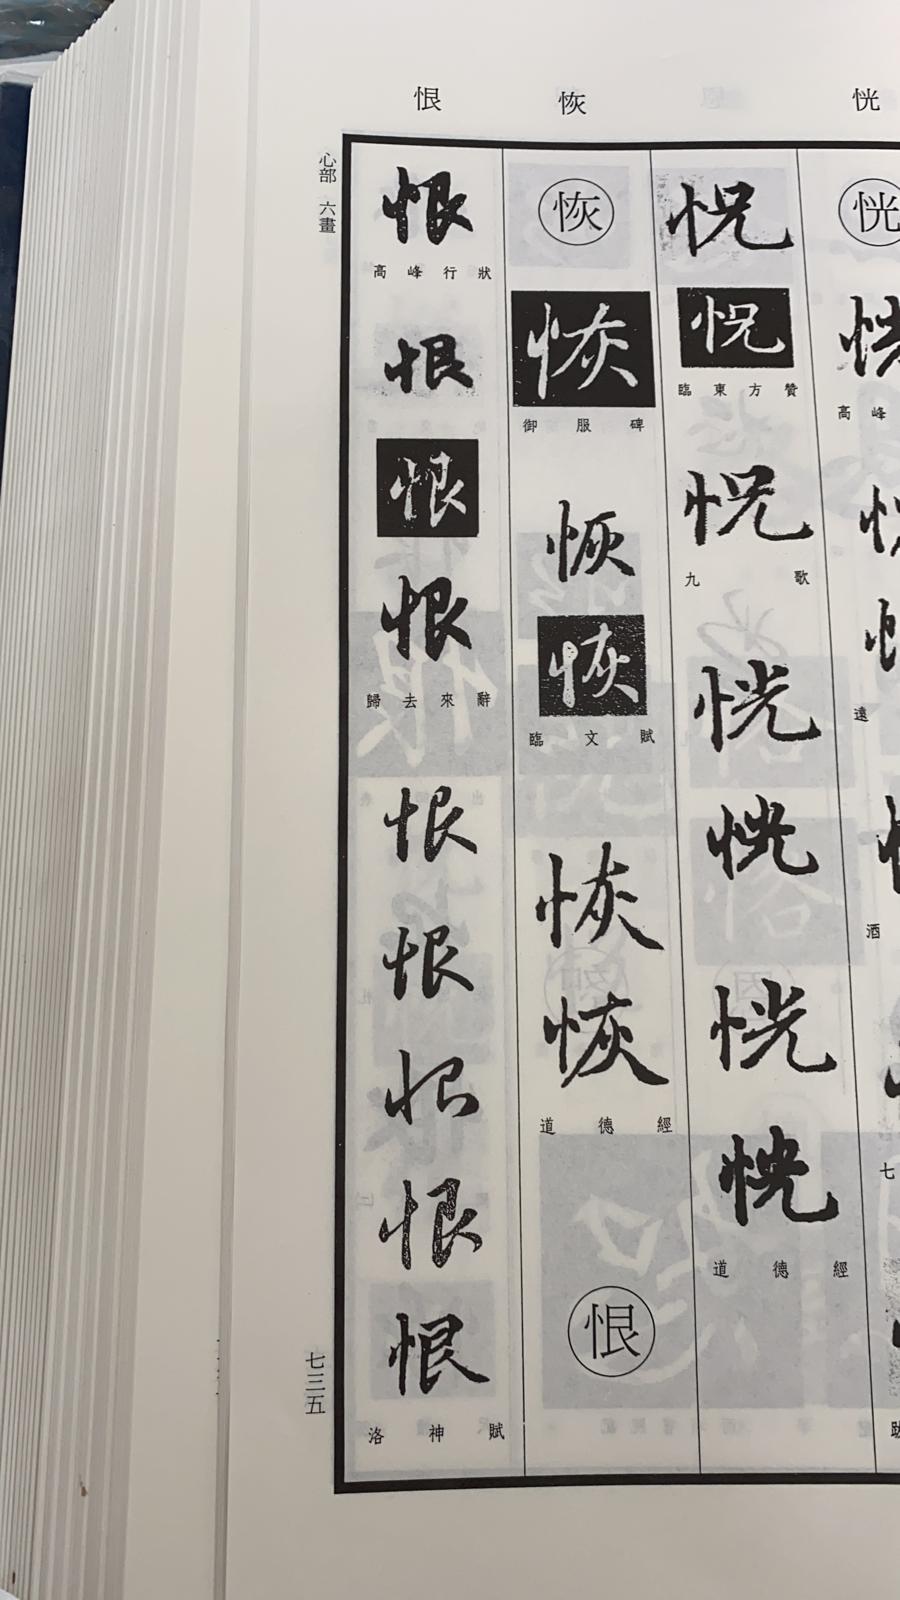 恍
恢
恨
恍
高峰
遠
酒
七
怳
怳
臨東方贊
怳
九歌
恍
恍
恍
恍
道德經
恢
恢
御服碑
恢
恢
臨文賦
恢
恢
道德經
恨
恨
高峰行狀
恨
恨
恨
歸去來辭
恨
恨
恨
恨
恨
洛神賦
心部 六畫
七三五